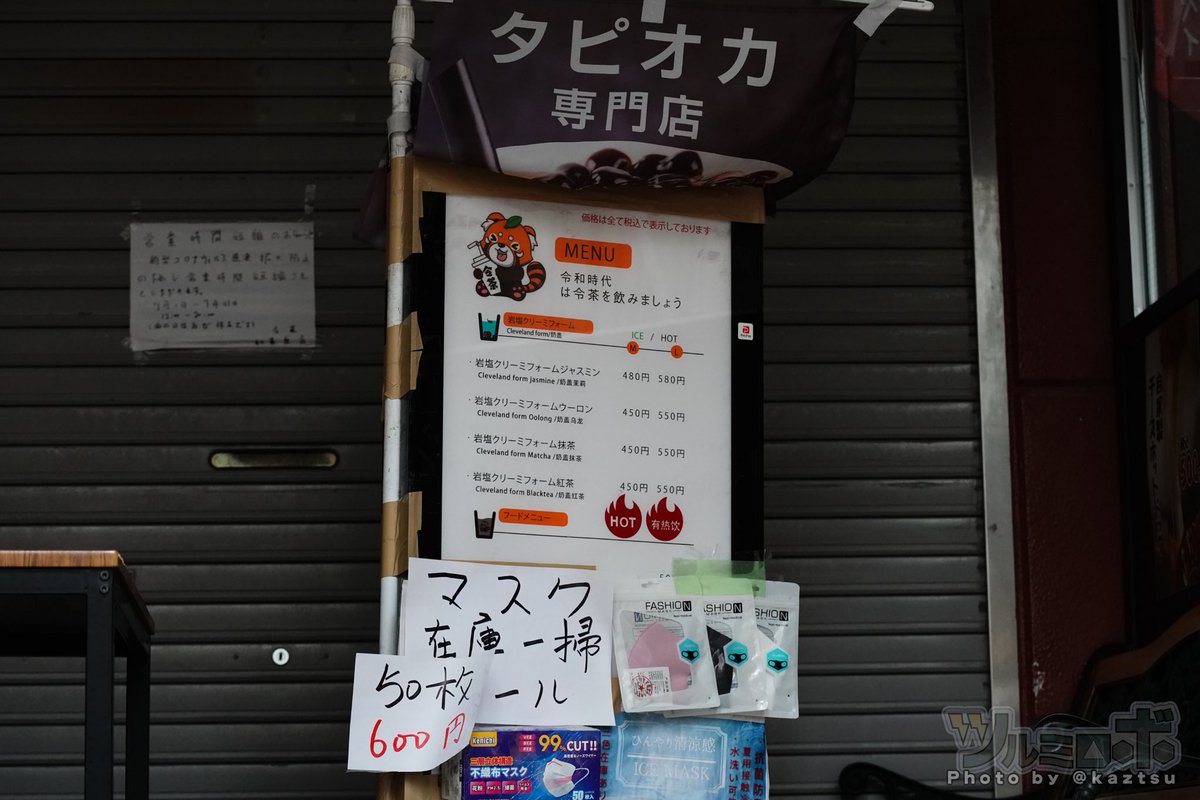 タピオカ
専門店
価格は全て税込で表示しております
令茶
MENU
令和時代
は令茶を飲みましょう
岩塩クリーミフォーム
Cleveland form/奶盖
ICE / HOT
M L
・岩塩クリーミフォームジャスミン 480円 580円
Cleveland form jasmine /奶盖茉莉
・岩塩クリーミフォームウーロン 450円 550円
Cleveland form Oolong /奶盖乌龙
・岩塩クリーミフォーム抹茶 450円 550円
Cleveland form Matcha /奶盖抹茶
・岩塩クリーミフォーム紅茶 450円 550円
Cleveland form Blacktea /奶盖红茶
フードメニュー
HOT
有热饮
営業時間短縮のお
マスク
在庫一掃
ール
50枚
600円
FASHION
FASHION
Kenichi
99%CUT!!
三層立体構造
不織布マスク
花粉 PM2.5
50枚入
ひんやり清涼感
ICE MASK
抗菌防
夏用接触
水洗い可
ツルミロボ
Photo by @kaztsu